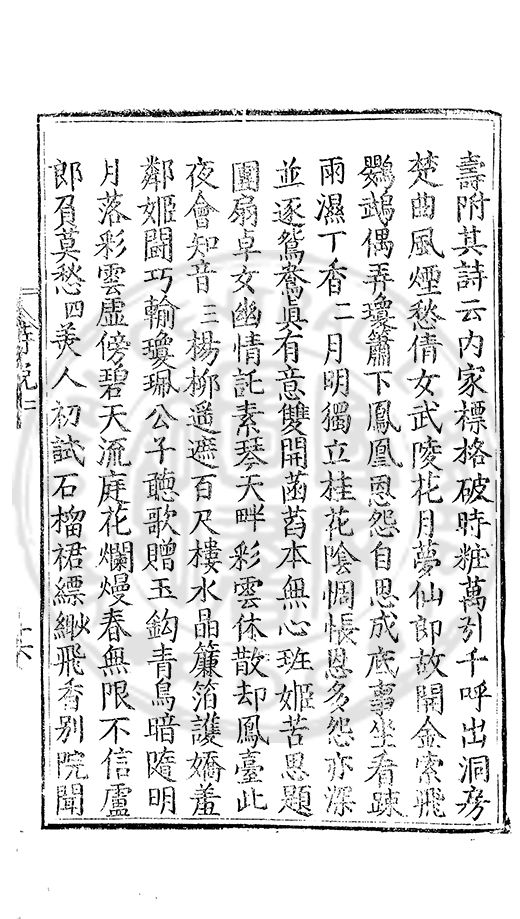 壽附其詩云內家標格破時粧萬引千呼出洞房
楚曲風煙愁倩女武陵花月夢仙郎故開金索飛
鸚鵡偶弄瓊簫下鳳凰恩怨自思成底事坐看疎
雨濕丁香二月明獨立桂花陰惆悵恩多怨亦深
並逐鴛鴦真有意雙開菡萏本無心班姬苦思題
團扇卓女幽情託素琴天畔彩雲休散却鳳臺此
夜會知音三楊柳遥遮百尺樓水晶簾箔護嬌羞
鄰姬鬪巧輸瓊珮公子聽歌贈玉鈎青鳥暗隨明
月落彩雲虛傍碧天流庭花爛熳春無限不信盧
郎負莫愁四美人初試石榴裙縹緲飛香别院聞